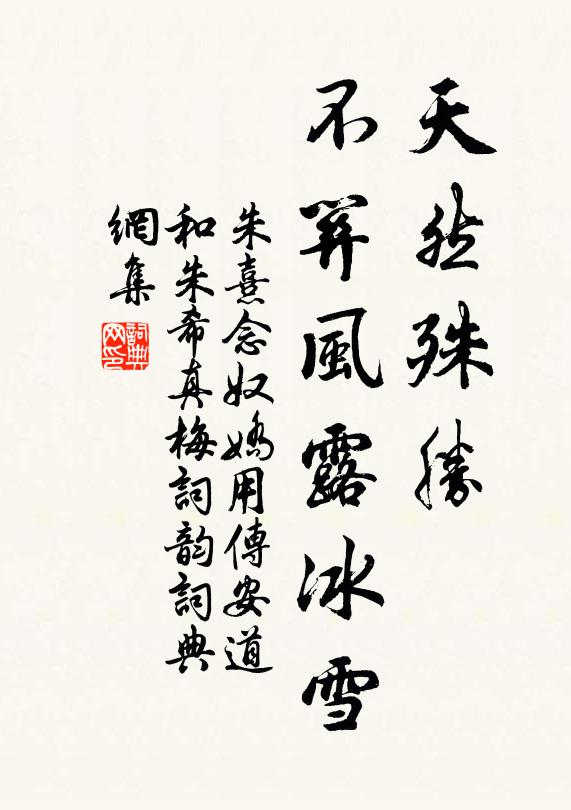 天然殊勝
不關風露冰雪
朱熹念奴嬌用傳安道
和朱希真梅詞韵詞典
網集
詞典
网印